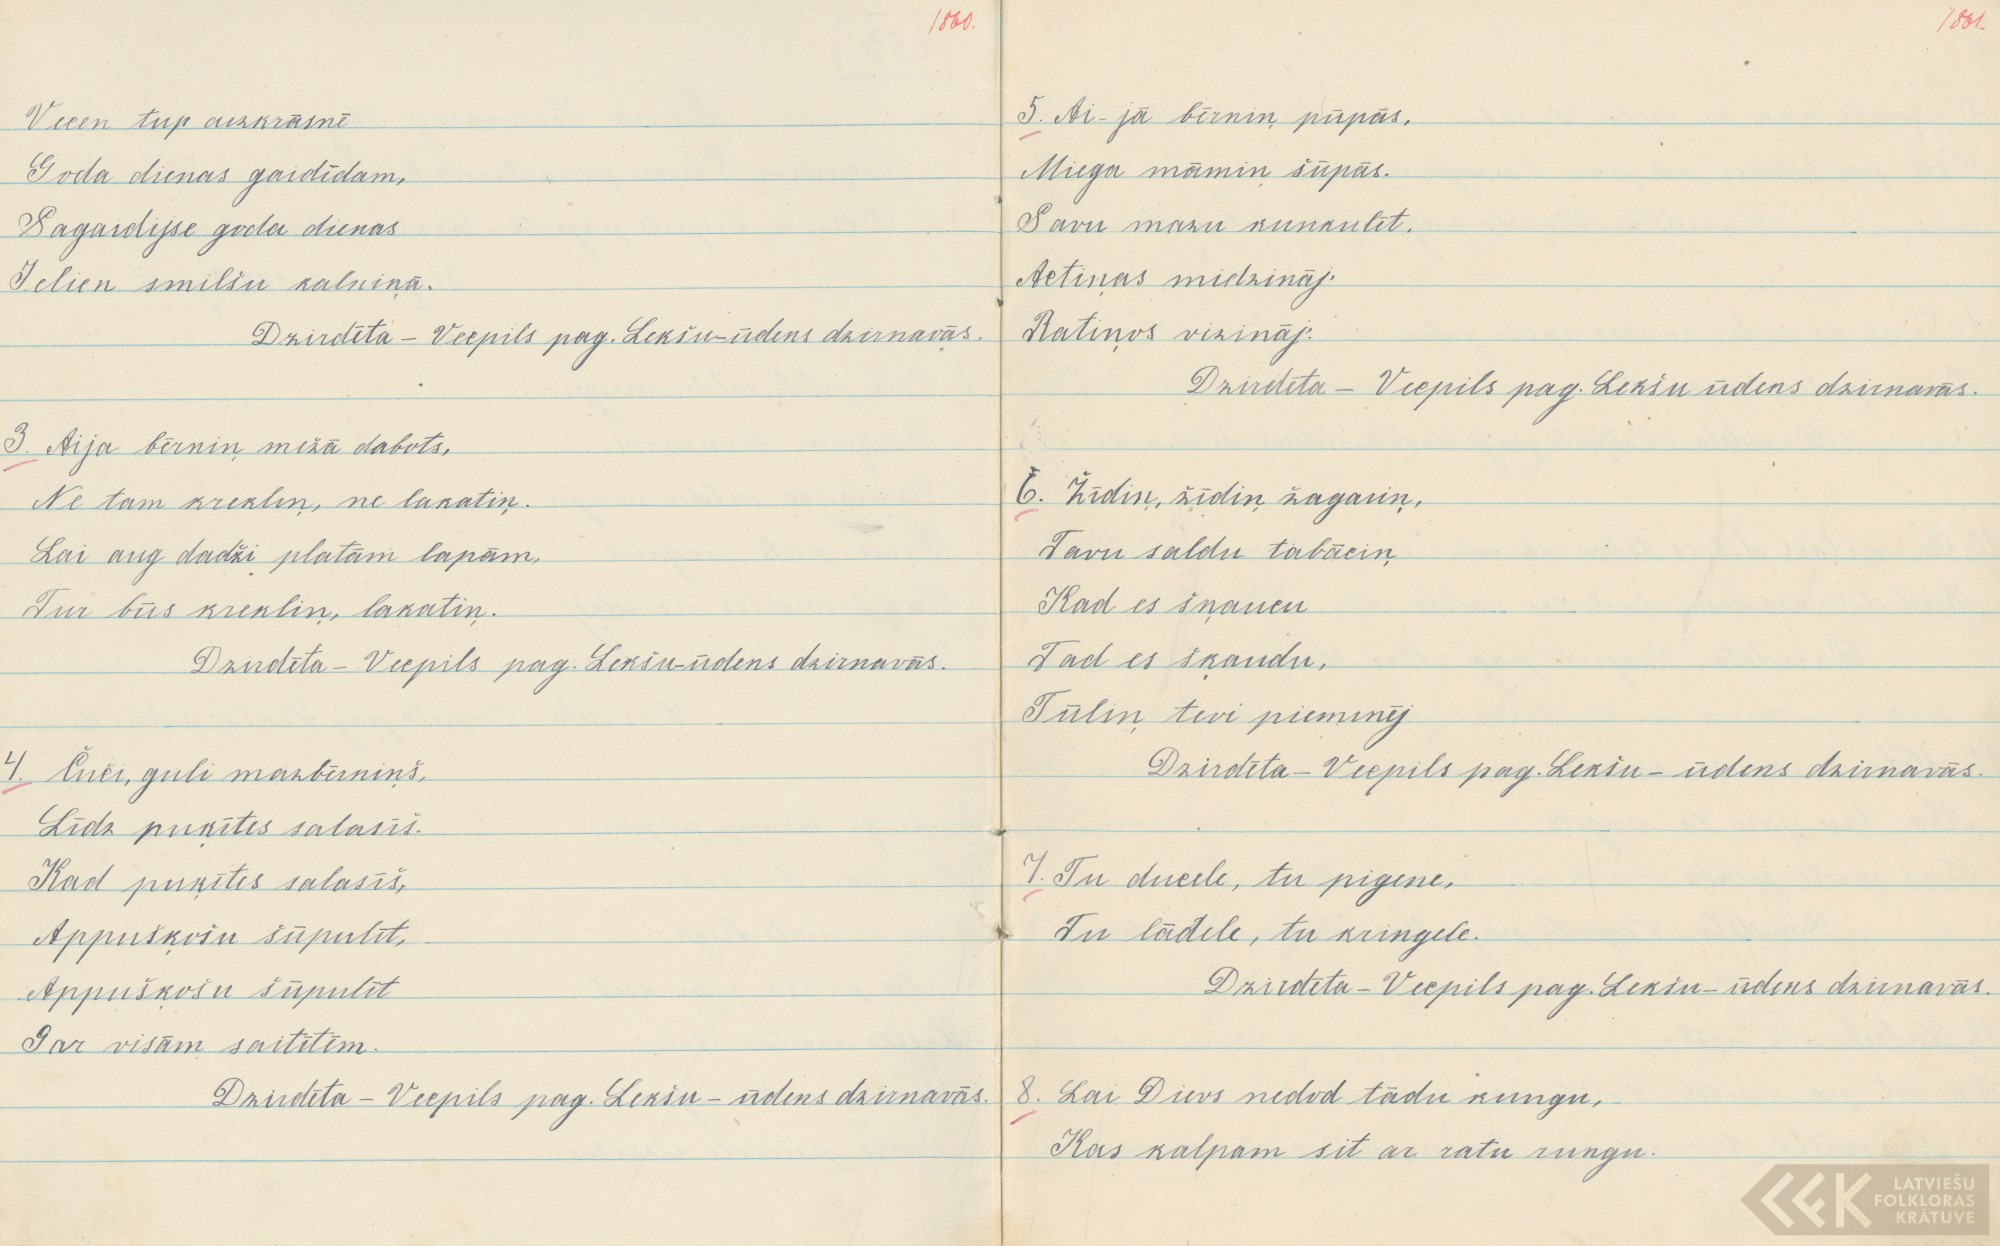 1860.
Vecen tup aizkrāsnē
Goda dienas gaidīdam,
Sagaidijse goda dienas
Ielien smilšu kalniņā.
Dzirdēta – Vecpils pag. Lekšu-ūdens dzirnavās.
3. Aija bērniņ mežā dabots,
Ne tam krekliņ, ne lakatiņ.
Lai aug dadži platām lapām,
Tur būs krekliņ, lakatiņ.
Dzirdēta – Vecpils pag. Lekšu-ūdens dzirnavās.
4. Čuči, guli mazbērniņš,
Līdz puķītes salasīš.
Kad puķītes salasīš,
Appušķošu šūpulīt,
Appušķošu šūpulīt
Gar visām saitītēm.
Dzirdēta – Vecpils pag. Lekšu – ūdens dzirnavās.
1861.
5. Ai-jā bērniņ pūpās,
Miega māmiņ šūpās.
Savu mazu kunkulīt.
Actiņas midzināj.
Ratiņos vizināj.
Dzirdēta – Vecpils pag. Lekšu ūdens dzirnavās.
6. Žīdiņ, žīdiņ žagariņ,
Tavu saldu tabāciņ
Kad es šņaucu
Tad es šķaudu,
Tūliņ tevi pieminēj
Dzirdēta – Vecpils pag. Lekšu – ūdens dzirnavās.
7. Tu ducele, tu pigene,
Tu lādele, tu kringele.
Dzirdēta – Vecpils pag. Lekšu – ūdens dzirnavās.
8. Lai Dievs nedod tādu kungu,
Kas kalpam sit ar ratu rungu.
LATVIEŠU
FOLKLORAS
KRĀTUVE